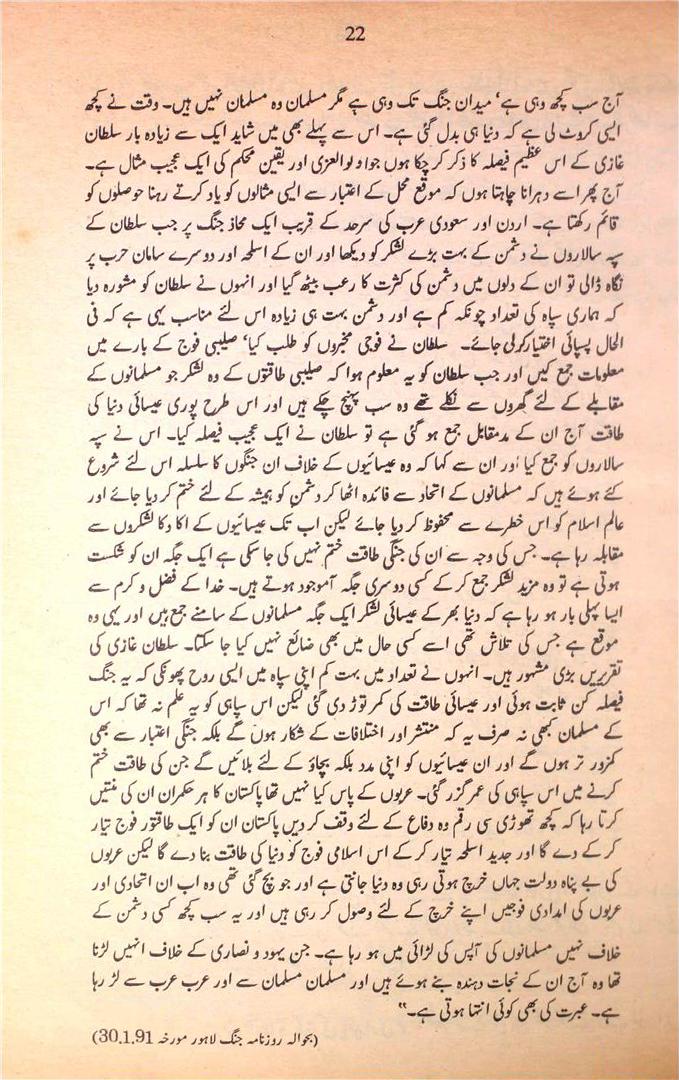 22
آج سب کچھ وہی ہے‘ میدان جنگ تک وہی ہے مگر مسلمان وہ مسلمان نہیں ہیں۔ وقت نے کچھ
ایسی کروٹ لی ہے کہ دنیا ہی بدل گئی ہے۔ اس سے پہلے بھی میں شاید ایک سے زیادہ بار سلطان
غازی کے اس عظیم فیصلہ کا ذکر کر چکا ہوں جو اولوالعزی اور یقین محکم کی ایک عجیب مثال ہے۔
آج پھر اسے دہرانا چاہتا ہوں کہ موقع محل کے اعتبار سے ایسی مثالوں کو یاد کرتے رہنا حوصلوں کو
قائم رکھتا ہے۔ اردن اور سعودی عرب کی سرحد کے قریب ایک محاذ جنگ پر جب سلطان کے
سپہ سالاروں نے دشمن کے بہت بڑے لشکر کو دیکھا اور ان کے اسلحہ اور دوسرے سامان حرب پر
نگاہ ڈالی تو ان کے دلوں میں دشمن کی کثرت کا رعب بیٹھ گیا اور انہوں نے سلطان کو مشورہ دیا
کہ ہماری سپاہ کی تعداد چونکہ کم ہے اور دشمن بہت ہی زیادہ اس لئے مناسب یہی ہے کہ فی
الحال پسپائی اختیار کر لی جائے۔ سلطان نے فوجی مخبروں کو طلب کیا‘ صلیبی فوج کے بارے میں
معلومات جمع کیں اور جب سلطان کو یہ معلوم ہوا کہ صلیبی طاقتوں کے وہ لشکر جو مسلمانوں کے
مقابلے کے لئے گھروں سے نکلے تھے وہ سب پہنچ چکے ہیں اور اس طرح پوری عیسائی دنیا کی
طاقت آج ان کے مدمقابل جمع ہو گئی ہے تو سلطان نے ایک عجیب فیصلہ کیا۔ اس نے سپہ
سالاروں کو جمع کیا اور ان سے کہا کہ وہ عیسائیوں کے خلاف ان جنگوں کا سلسلہ اس لئے شروع
کئے ہوئے ہیں کہ مسلمانوں کے اتحاد سے فائدہ اٹھا کر دشمن کو ہمیشہ کے لئے ختم کر دیا جائے اور
عالم اسلام کو اس خطرے سے محفوظ کر دیا جائے لیکن اب تک عیسائیوں کے اکا دکا لشکروں سے
مقابلہ رہا ہے۔ جس کی وجہ سے ان کی جنگی طاقت ختم نہیں کی جا سکی ہے ایک جگہ ان کو شکست
ہوتی ہے تو وہ مزید لشکر جمع کر کے کسی دوسری جگہ آموجود ہوتے ہیں۔ خدا کے فضل و کرم سے
ایسا پہلی بار ہو رہا ہے کہ دنیا بھر کے عیسائی لشکر ایک جگہ مسلمانوں کے سامنے جمع ہیں اور یہی وہ
موقع ہے جس کی تلاش تھی اسے کسی حال میں بھی ضائع نہیں کیا جا سکتا۔ سلطان غازی کی
تقریریں بڑی مشہور ہیں۔ انہوں نے تعداد میں بہت کم اپنی سپاہ میں ایسی روح پھونکی کہ یہ جنگ
فیصلہ کن ثابت ہوئی اور عیسائی طاقت کی کمر توڑ دی گئی لیکن اس سپاہی کو یہ علم نہ تھا کہ اس
کے مسلمان کبھی نہ صرف یہ کہ منتشر اور اختلافات کے شکار ہوں گے بلکہ جنگی اعتبار سے بھی
کمزور تر ہوں گے اور ان عیسائیوں کو اپنی مدد بلکہ بچاؤ کے لئے بلائیں گے جن کی طاقت ختم
کرنے میں اس سپاہی کی عمر گزر گئی۔ عربوں کے پاس کیا نہیں تھا پاکستان کا ہر حکمران ان کی منتیں
کرتا رہا کہ کچھ تھوڑی سی رقم وہ دفاع کے لئے وقف کر دیں پاکستان ان کو ایک طاقتور فوج تیار
کر کے دے گا اور جدید اسلحہ تیار کر کے اس اسلامی فوج کو دنیا کی طاقت بنا دے گا لیکن عربوں
کی بے پناہ دولت جہاں خرچ ہوتی رہی وہ دنیا جانتی ہے اور جو بچ گئی تھی وہ اب ان اتحادی اور
عربوں کی امدادی فوجیں اپنے خرچ کے لئے وصول کر رہی ہیں اور یہ سب کچھ کسی دشمن کے
خلاف نہیں مسلمانوں کی آپس کی لڑائی میں ہو رہا ہے۔ جن یہود و نصاری کے خلاف انہیں لڑنا
تھا وہ آج ان کے نجات دہندہ بنے ہوئے ہیں اور مسلمان مسلمان سے اور عرب عرب سے لڑ رہا
ہے۔ عبرت کی بھی کوئی انتہا ہوتی ہے۔“
(بحوالہ روزنامہ جنگ لاہور مورخہ 30.1.91)